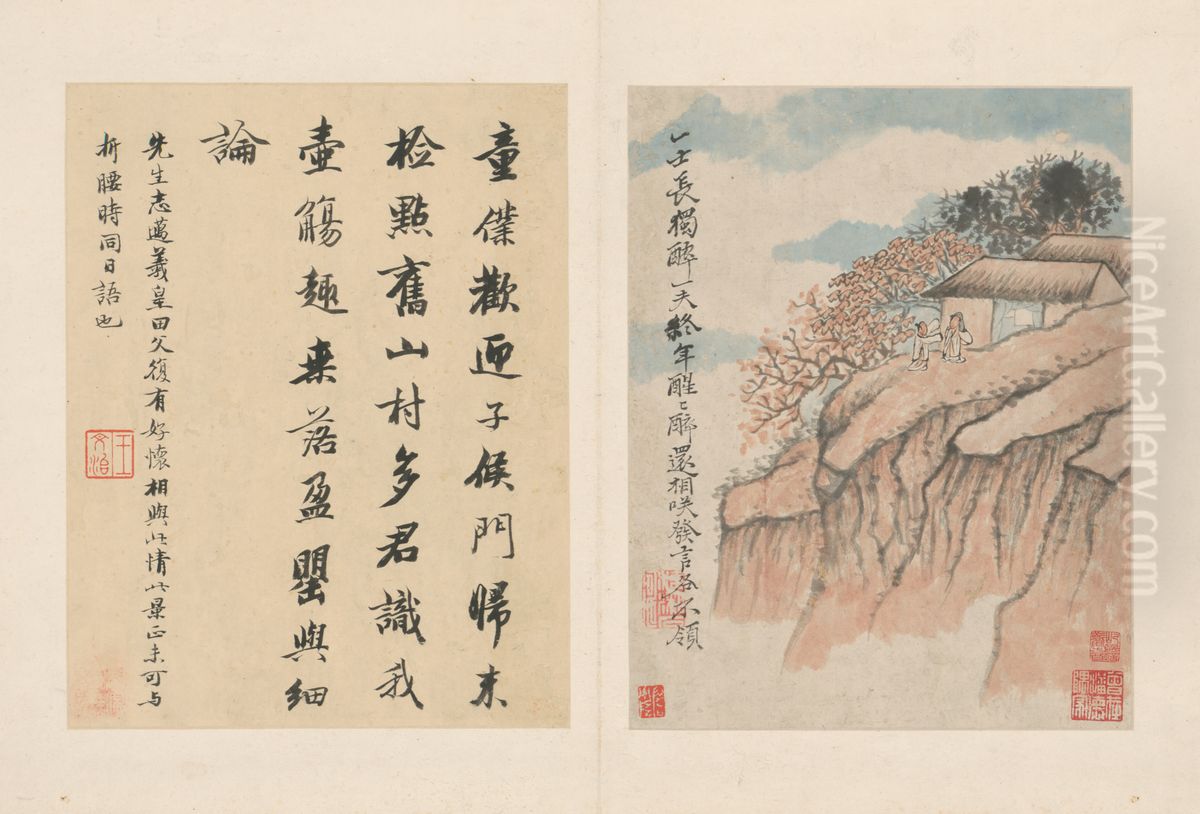 一士長獨醉一夫終年醒〻醉還相咲發言各不領
童僕歡迎子候門歸来
检點舊山村多君識我
壺觴趣来落盈罌與細
論
先生志邁羲皇田父復有好懷相與此情此景正未可与
折腰時同日語也
王文治
NiceArtGallery.com